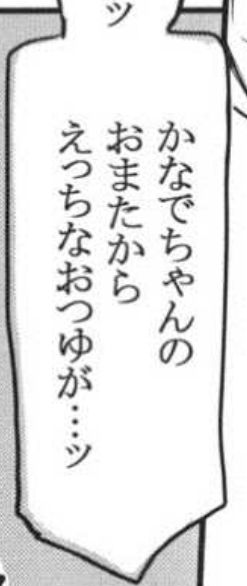 ッ
かなでちゃんの
おまたから
えっちなおつゆが…ッ